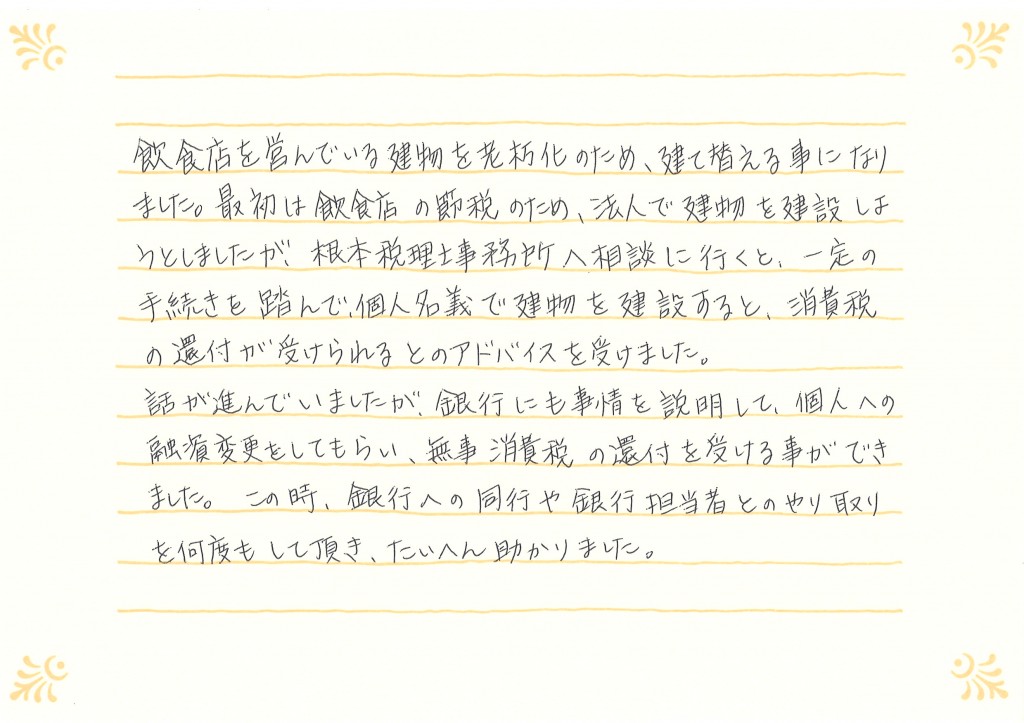 飲食店を営んでいる建物を老朽化のため、建て替える事になり
ました。最初は飲食店の節税のため、法人で建物を建設しよ
うとしましたが、根本税理士事務所へ相談に行くと、一定の
手続きを踏んで、個人名義で建物を建設すると、消費税
の還付が受けられるとのアドバイスを受けました。
話が進んでいましたが、銀行にも事情を説明して、個人への
融資変更をしてもらい、無事消費税の還付を受ける事ができ
ました。この時、銀行への同行や銀行担当者とのやり取り
を何度もして頂き、たいへん助かりました。